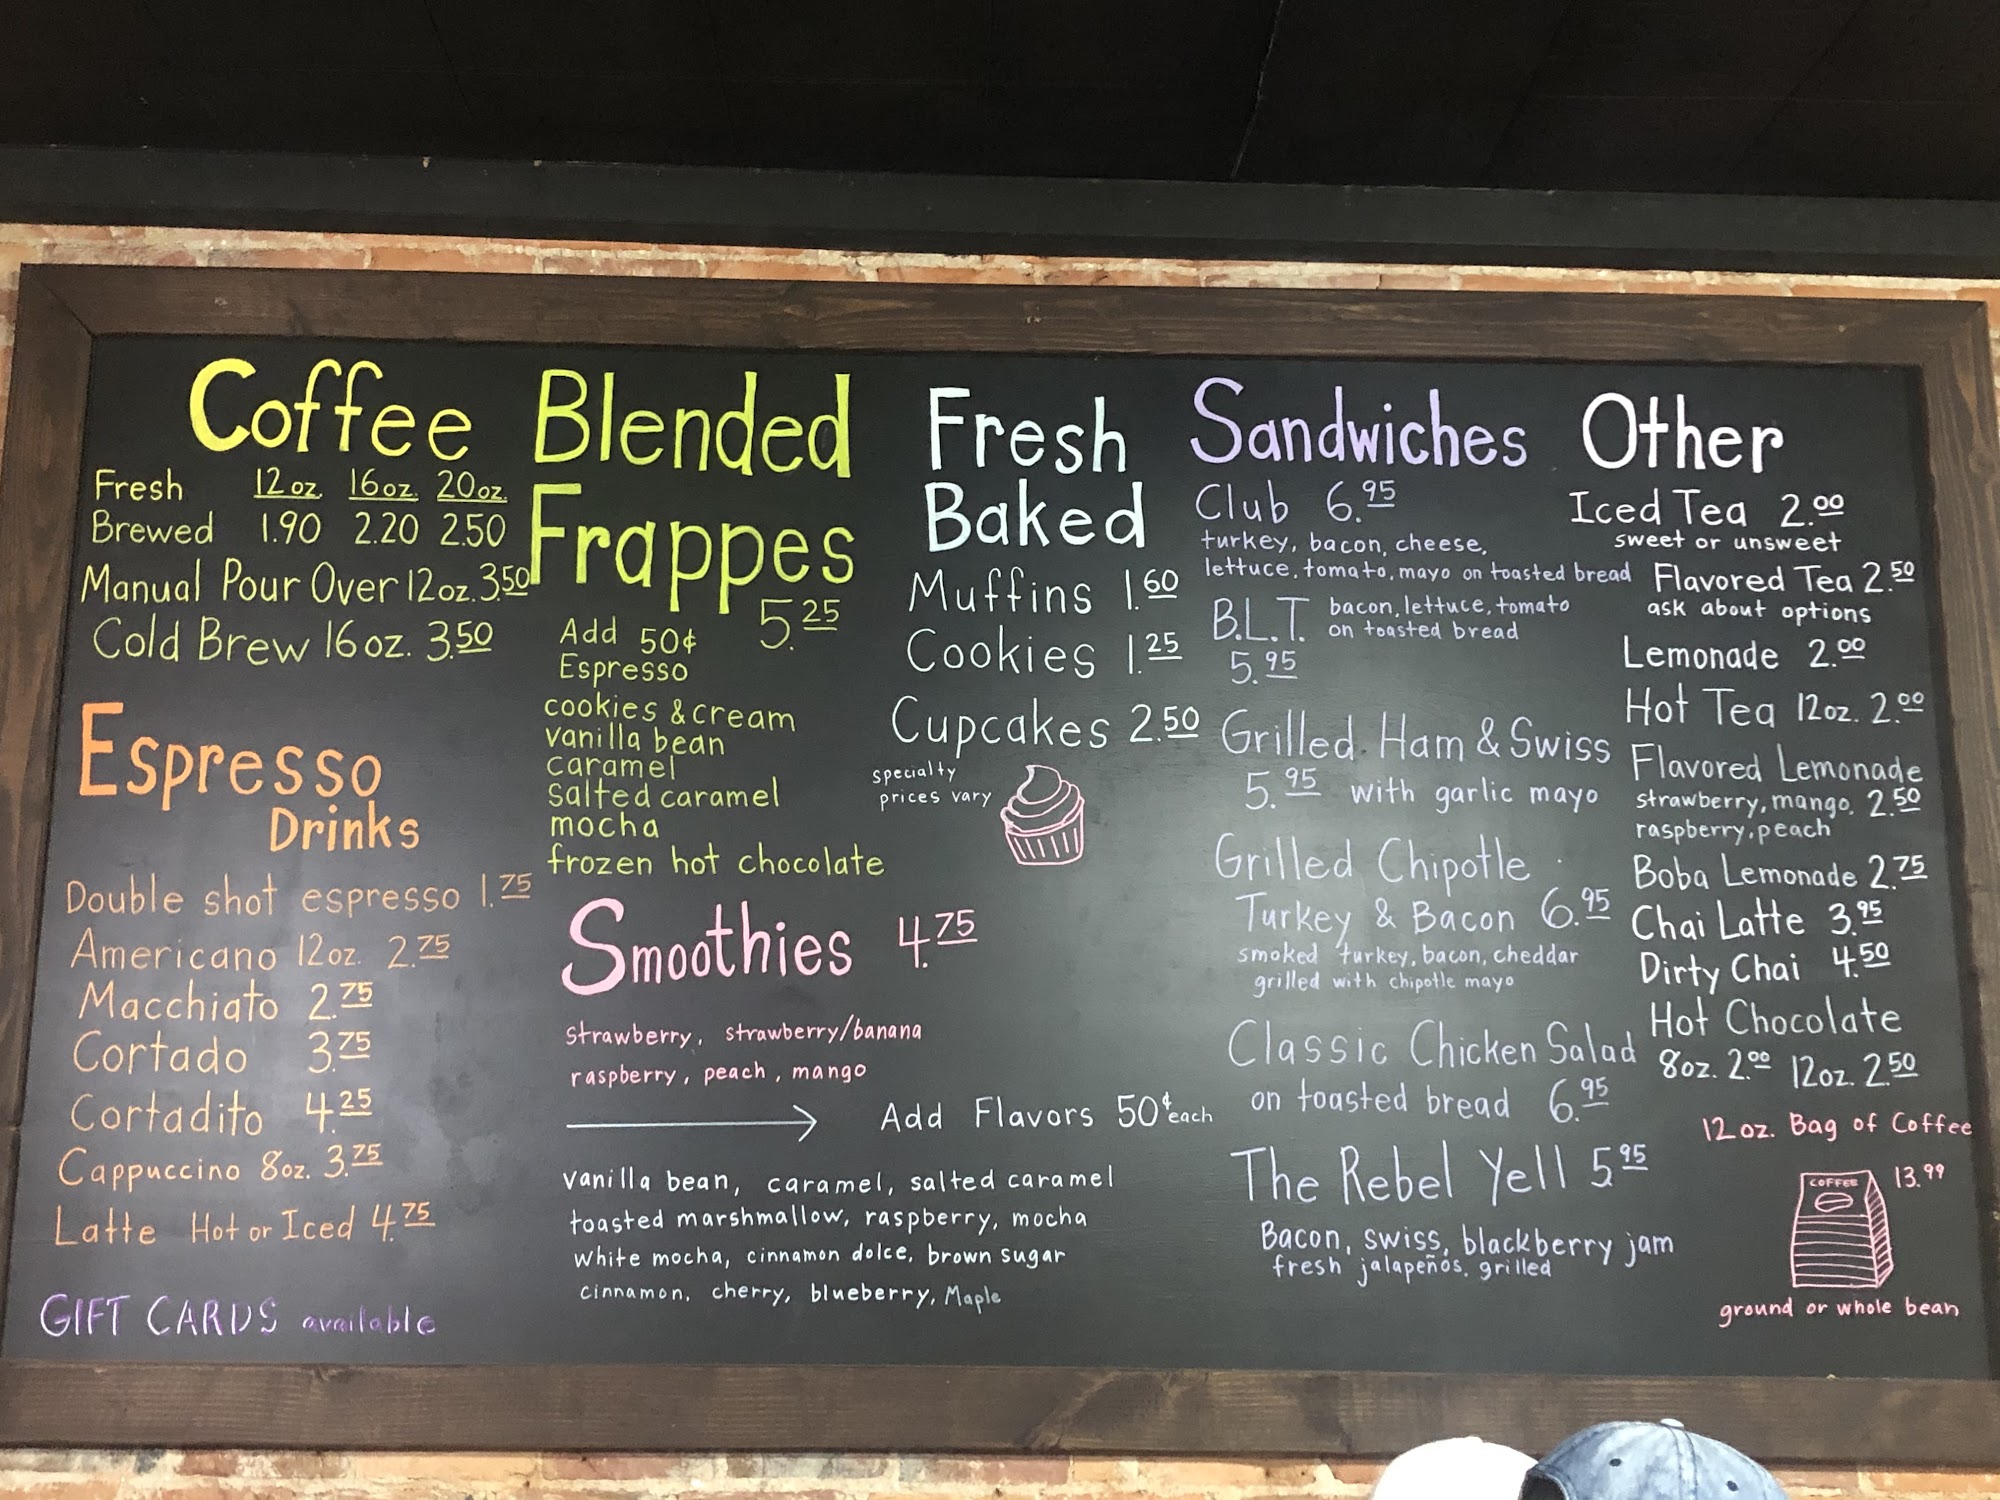 Coffee
Fresh 12oz. 16oz. 20oz.
Brewed 1.90 2.20 2.50
Manual Pour Over 12oz. 3.50
Cold Brew 16oz. 3.50
Espresso
Drinks
Double shot espresso 1.75
Americano 12oz. 2.75
Macchiato 2.75
Cortado 3.75
Cortadito 4.25
Cappuccino 8oz. 3.75
Latte Hot or Iced 4.75
GIFT CARDS available
Blended
Frappes
5.25
Add 50¢
Espresso
cookies & cream
vanilla bean
caramel
salted caramel
mocha
frozen hot chocolate
Smoothies 4.75
strawberry, strawberry/banana
raspberry, peach, mango
Add Flavors 50¢ each
vanilla bean, caramel, salted caramel
toasted marshmallow, raspberry, mocha
white mocha, cinnamon dolce, brown sugar
cinnamon, cherry, blueberry, Maple
Fresh
Baked
Muffins 1.60
Cookies 1.25
Cupcakes 2.50
specialty
prices vary
Sandwiches
Club 6.95
turkey, bacon, cheese,
lettuce, tomato, mayo on toasted bread
B.L.T. bacon, lettuce, tomato
on toasted bread
5.95
Grilled Ham & Swiss
5.95 with garlic mayo
Grilled Chipotle
Turkey & Bacon 6.95
smoked turkey, bacon, cheddar
grilled with chipotle mayo
Classic Chicken Salad
on toasted bread 6.95
The Rebel Yell 5.95
Bacon, swiss, blackberry jam
fresh jalapeños, grilled
Other
Iced Tea 2.00
sweet or unsweet
Flavored Tea 2.50
ask about options
Lemonade 2.00
Hot Tea 12oz. 2.00
Flavored Lemonade
strawberry, mango, 2.50
raspberry, peach
Boba Lemonade 2.75
Chai Latte 3.95
Dirty Chai 4.50
Hot Chocolate
8oz. 2.00 12oz. 2.50
12oz. Bag of Coffee
COFFEE 13.99
ground or whole bean